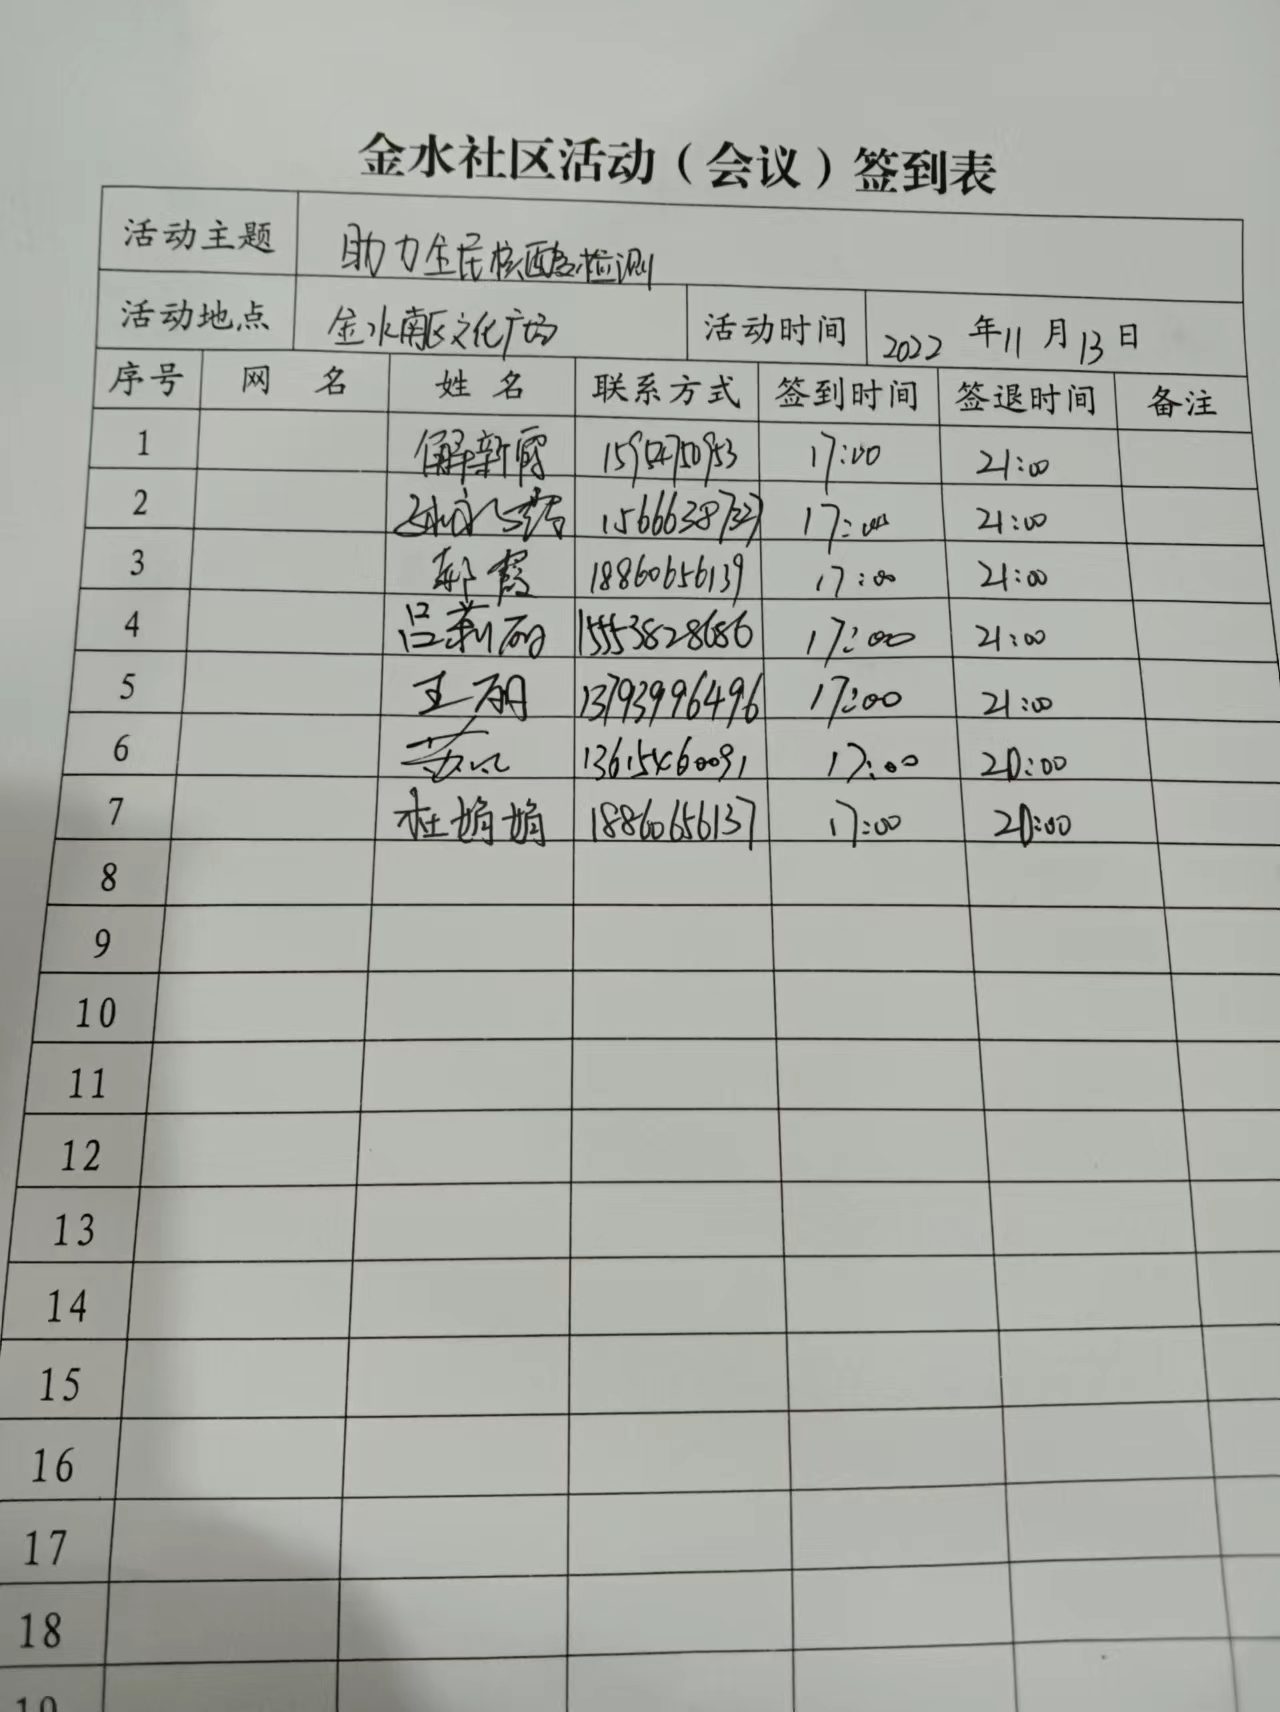 金水社区活动（会议）签到表
活动主题 助力全民核酸检测
活动地点 金水南区文化广场 活动时间 2022 年 11 月 13 日
序号 网 名 姓 名 联系方式 签到时间 签退时间 备注
1 解新霞 15954750953 17:00 21:00
2 17:00 21:00
3 郝霞 18860656139 17:00 21:00
4 吕莉丽 15553828686 17:00 21:00
5 王丽 13793996496 17:00 21:00
6 17:00 20:00
7 杜娟娟 18860656137 17:00 20:00
8
9
10
11
12
13
14
15
16
17
18
19